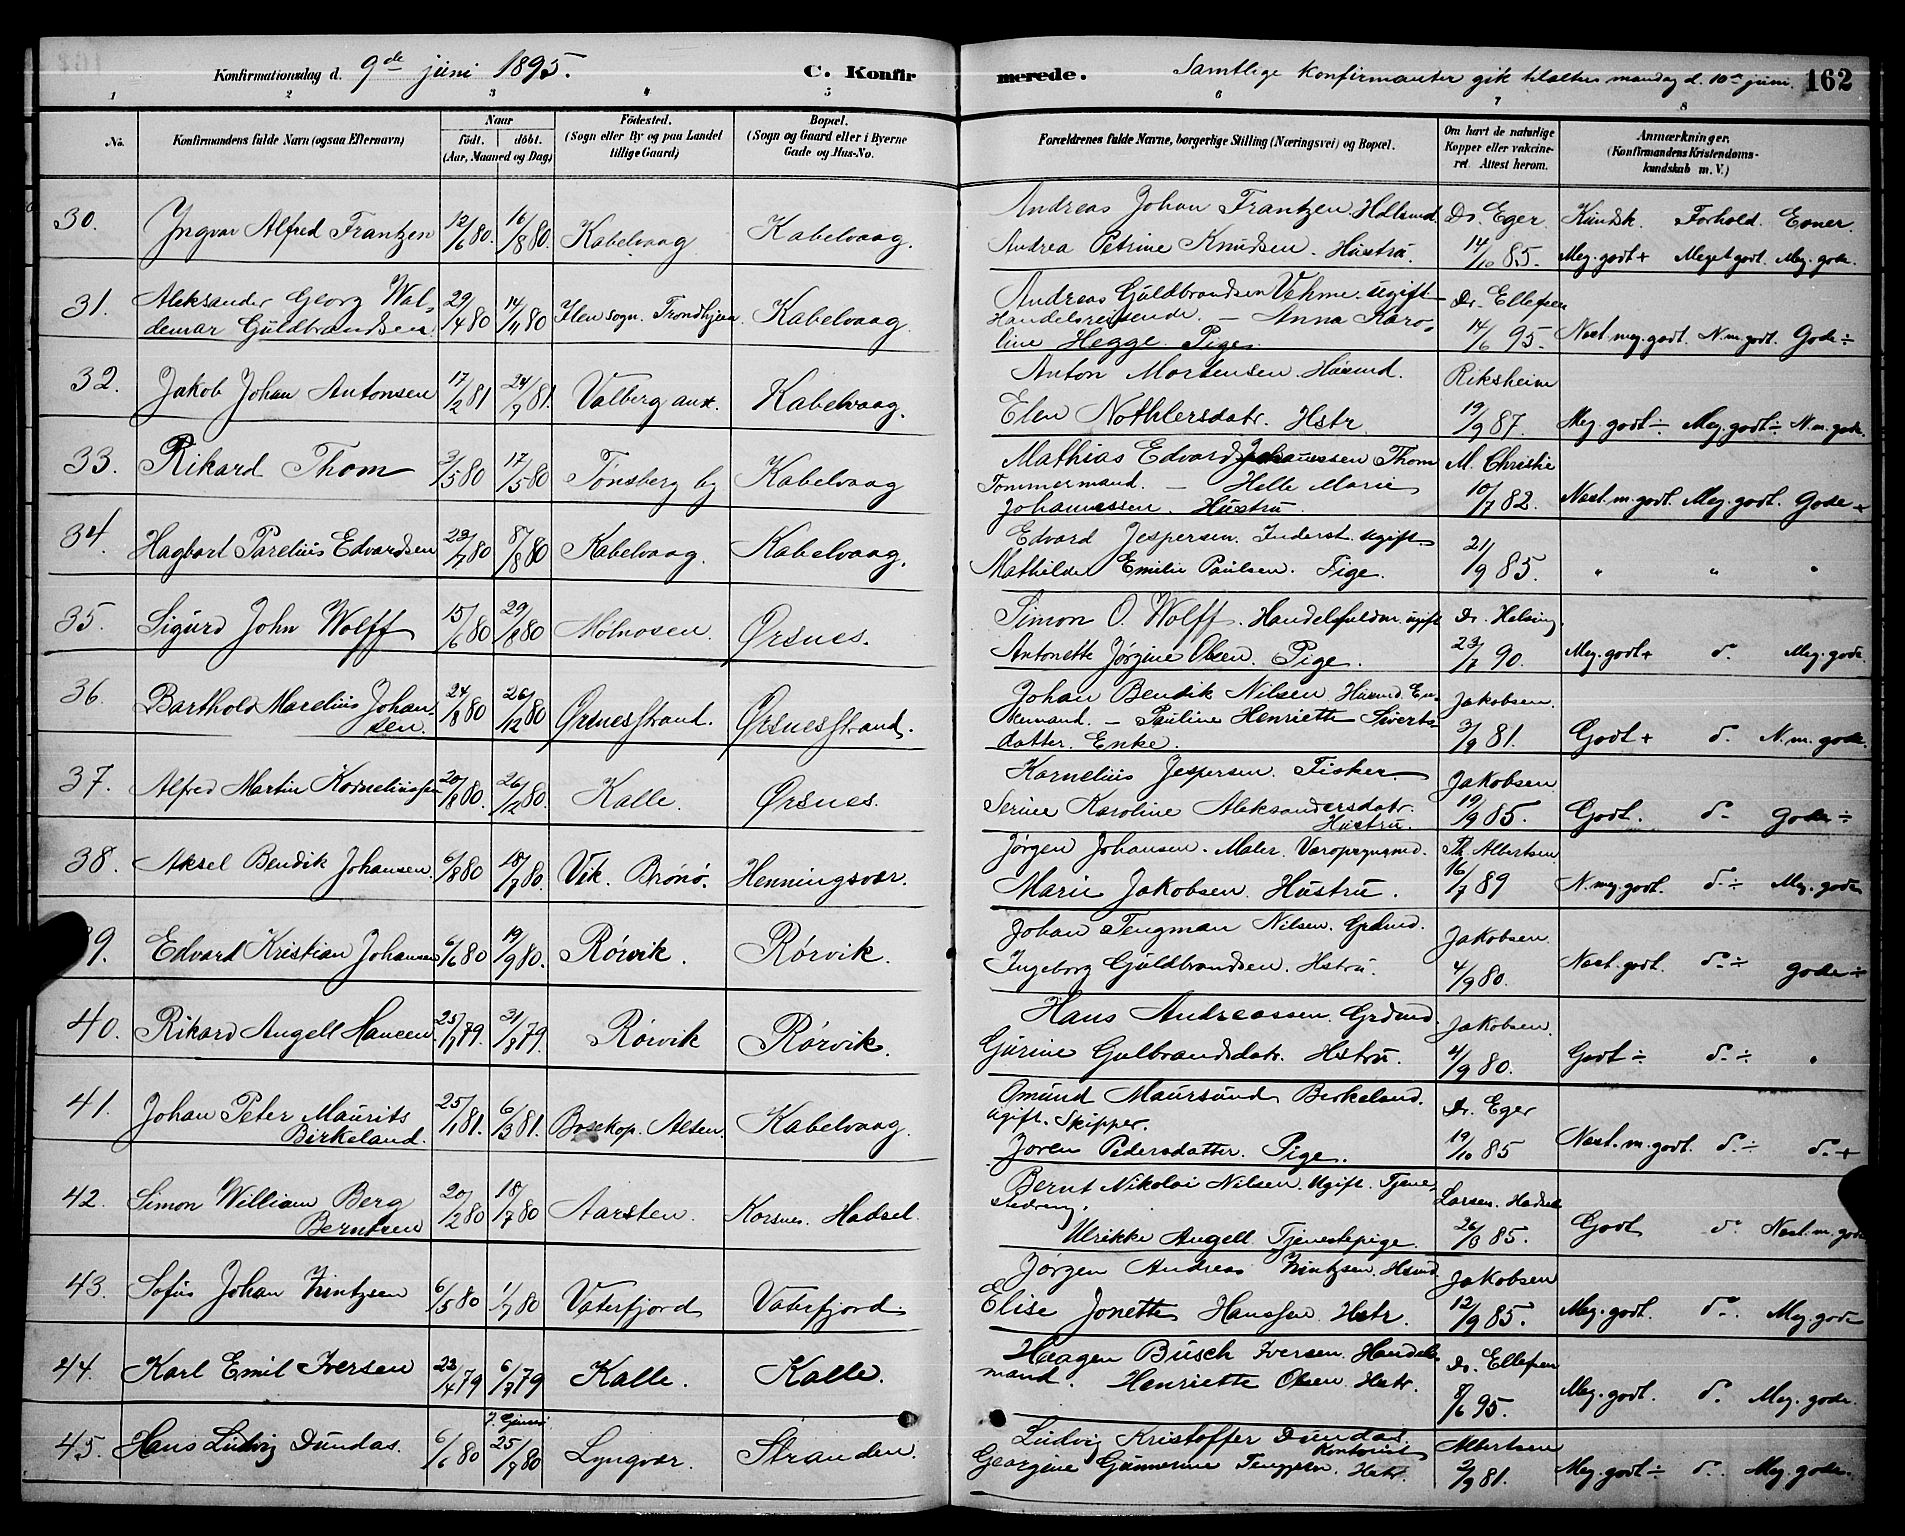 Konfirmationsdag d. 9de juni 1895. C. Konfirmerede. Samtlige Konfirmanter gik tilalters mandag d. 10de juni. 162
1 2 3 4 5 6 7 8
No. Konfirmandens fulde Navn (ogsaa Efternavn) Naar født. døbt. (Aar, Maaned og Dag) Fødested. (Sogn eller By og paa Landet tillige Gaard) Bopæl. (Sogn og Gaard eller i Byerne Gade og Hus-No. Forældrenes fulde Navne, borgerlige Stilling (Næringsvei) og Bopæl. Om havt de naturlige Kopper eller vakcineret Attest herom. Anmærkninger. (Konfirmandens Kristendomskundskab m. V.)
30. Yngvar Alfred Frantzen 12/6 80. 16/8 80. Kabelvaag Kabelvaag. Andreas Johan Frantzen. Dr. Eger Kundsk. Forhold. Evner.
Andrea Petrine Knudsen. Hustru. 14/10 85. Meg. godt+ Meget godt. Meg. gode.
31. Aleksander Georg Waldemar Guldbrandsen 29/4 80 14/11 80 Ilen sogn. Trondhjem. Kabelvaag Andreas Guldbrandsen Vehme. ugift Dr. Ellefsen
Handelsreisende. – Anna Karoline Hegge. Pige. 14/6 95. Nest. meg. godt. N. m. godt. Gode ÷
32. Jakob Johan Antonsen 17/2 81 24/7 81. Valberg anx. Kabelvaag. Anton Mortensen. Husmd. Riksheim
Elen Nothlersdatr. Hstr 19/9 87. Meg. godt ÷. Meg. godt ÷ N. m. gode.
33. Rikard Thom 3/5 80 17/5 80 Tønsberg by Kabelvaag Mathias Edvard Johannessen Thom M. Christie
Tømmermand. – Helle Marie Johannessen. Hustru. 10/7 82. Nest. m. godt. Meg. godt. Gode +
34. Hagbart Parelius Edvardsen 23/7 80 8/8 80 Kabelvaag. Kabelvaag. Edvard Jespersen. Inderst. ugift.
Mathilde Emilie Paulsen. Pige. 21/9 85. " " "
35. Sigurd John Wolff 15/6 80 29/8 80 Molnosen. Ørsnes. Simon O. Wolff. Handelsfuldm. ugift Dr. Helsing
Antonette Jørgine Olsen. Pige. 23/7 90. Meg. godt+ do. Meg. gode.
36. Barthold Marelius Johansen. 24/8 80 26/12 80 Ørsnesstrand. Ørsnesstrand. Johan Bendik Nilsen Husmd. Enkemand. – Pauline Henriette Siverts- Jakobsen.
datter. Enke. 3/9 81. Godt + do. N. m. gode.
37. Alfred Martin Korneliussen 20/8 80. 26/12 80. Kalle. Ørsnes. Kornelius Jespersen. Fisker Jakobsen
Serine Karoline Aleksandersdatr. Hustru. 19/9 85. Godt. do. gode ÷
38. Aksel Bendik Johansen. 6/8 80 18/7 80. Vik. Brønø. Henningsvær. Jørgen Johansen. Maler. Th Albertsen
Marie Jakobsen. Hustru. 16/7 89 N. meg. godt. do. ÷ Meg. gode
39. Edvard Kristian Johansen 6/6 80 19/9 80. Rørvik. Rørvik. Johan Tengman Nilsen. Grdmd. Jakobsen
Ingeborg Guldbrandsen. Hstru. 4/9 80. Nest. godt. do. ÷ gode ÷
40. Rikard Angell Hansen. 25/7 79. 31/8 79. Rørvik Rørvik. Hans Andreassen. Grdmd. Jakobsen.
Gurine Gulbrandsdatr. Hstru. 4/9 80. Godt ÷ do. ÷ "
41. Johan Peter Maurits Birkeland. 25/1 81. 6/3 81. Bosekop. Alten. Kabelvaag. Omund Maursund Birkeland. Dr. Eger
ugift. Skipper.
Joren Pedersdatter. Pige. 19/10 85 Nest. m. godt. do. ÷ do. +
42. Simon William Berg Berntsen 20/2 80 18/7 80 Aarsten. Korsnes. Hadsel. Bernt Nikolai Nilsen. Ugift. Tjenestedreng. Larsen. Hadsel
Ulrikke Angell. Tjenestepige. 26/9 85. Godt do. Nest. m. gode
43. Sofus Johan Zrintzsen 6/5 80 1/7 80 Vaterfjord Vaterfjord. Jørgen Andreas Zrintzsen. Hsmd Jakobsen
Elise Jonette Hanssen. Hstr. 12/9 85. Meg. godt. do. Meg. gode
44. Karl Emil Iversen 23/4 79 6/7 79 Kalle. Kalle. Haagen Busch Iversen. Handelsmand. Dr. Ellefsen
Henriette Olsen. Hstr. 8/6 95. Meg. godt. do. Meg. gode.
45. Hans Ludvig Dundas. 6/6 80 25/7 80 Lyngvær. Stranden. Ludvig Kristoffer Dundas. Kontorist Albertsen
Georgine Gunnerine. Hstr. 2/9 81. Meg. godt ÷ do. Meg. gode.